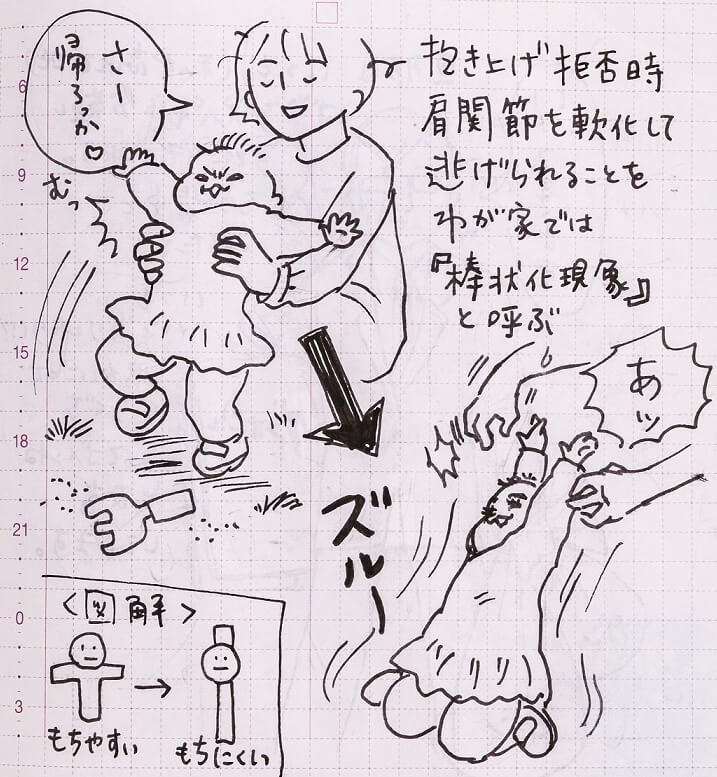 さー
帰ろっか♡
抱き上げ拒否時
肩関節を軟化して
逃げられることを
わが家では
『棒状化現象』
と呼ぶ
むっ
あッ
ズルー
6
9
12
15
18
21
0
3
＜図解＞
→
もちやすい
もちにくい